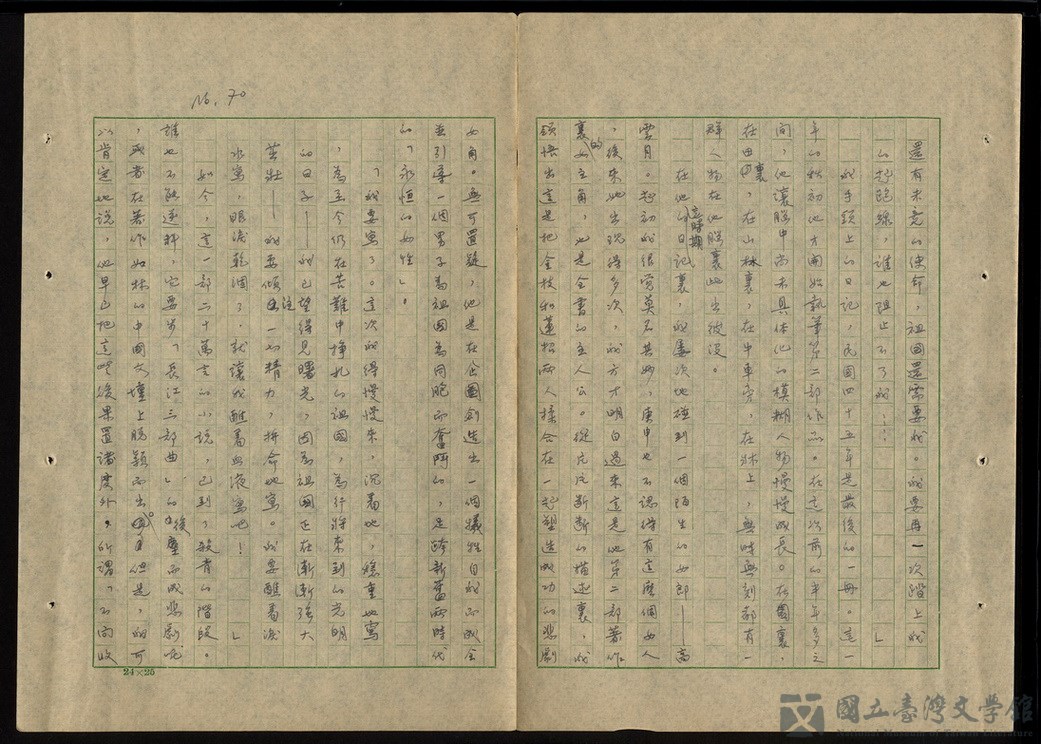 還有未竟的使命,祖國還需要我。我要再一次踏上我
的起跑線,誰也阻止不了我……」
我手頭上的日記,民國四十五年是最後的一冊。這一
年的秋初他才開始執筆第二部作品。在這次前的半年多之
間,他讓腦中尚未具体化的模糊人物慢慢成長。在園裏,
在田裏,在山林裏,在牛車旁,在牀上,無時無刻都有一
群人物在他腦裏出出被沒。
在他這時期的日記裏,我屢次地碰到一個陌生的女郎——高
雲月。起初我很覺莫名其妙,庚申也不認得有這麼個女人
,後來她出現得多次,我方才明白過來這是他第二部著作
裏的女主角,也是全書的主人公。從片片斷斷的描述裏,我
領悟出這是把金枝和蓮招兩人揉合在一起塑造成功的悲劇
No. 70
女角。無可置疑,他是在企圖創造出一個犧牲自我而成全
並引導一個男子為祖國為同胞而奮鬥的,足跨新舊兩時代
的「永恒的女性」。
「我要寫了。這次我得慢慢來,沉着地,穩重地寫
,為至今仍在苦難中掙扎的祖國,為行將來到的光明
的日子——我已望得見曙光,因為祖國正在漸漸強大
茁壯——我要傾注一切精力,拼命地寫。我要醮着淚
水寫,眼淚乾涸了,就讓我醮着血液寫吧!」
如今,這一部二十萬言的小說,已到了殺青的階段。
誰也不能逆料,它要步「長江三部曲」的後塵而成悲劇呢
,或者在著作如林的中國文壇上脫穎而出。但是,我可
以肯定地說,他早已把這些後果置諸度外,所謂「不問收
24×25
國立臺灣文學館
National Museum of Taiwan Literature